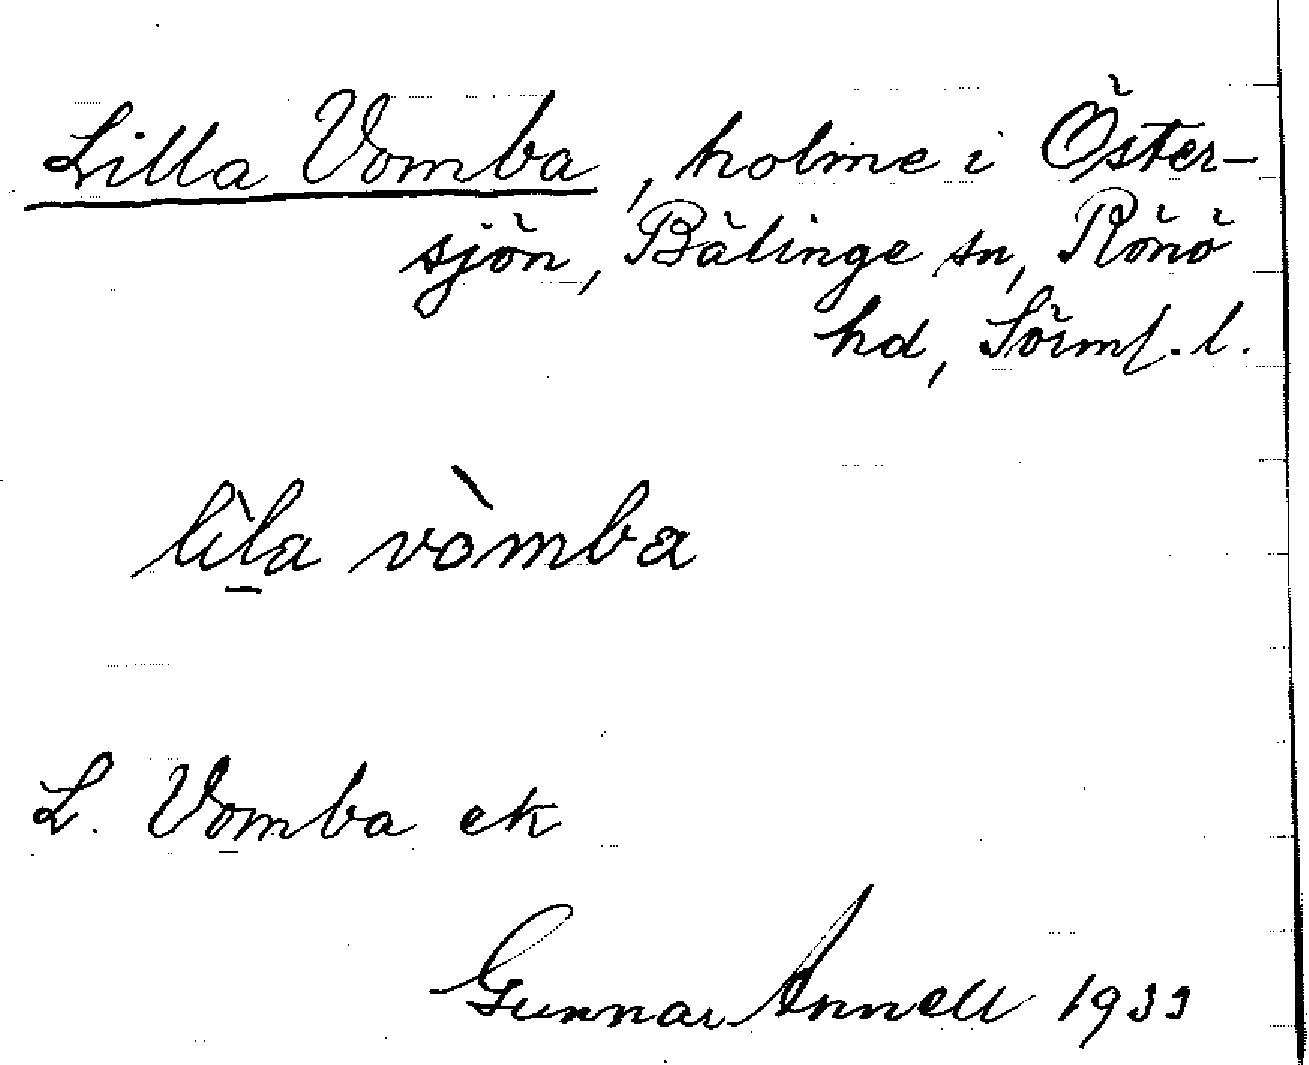 Lilla Vomba, holme i Öster-
sjön, Bälinge sn, Rönö
hd, Sörml. l.
lìl̠a vòmba
L. Vomba ek
Gunnar Annell 1933